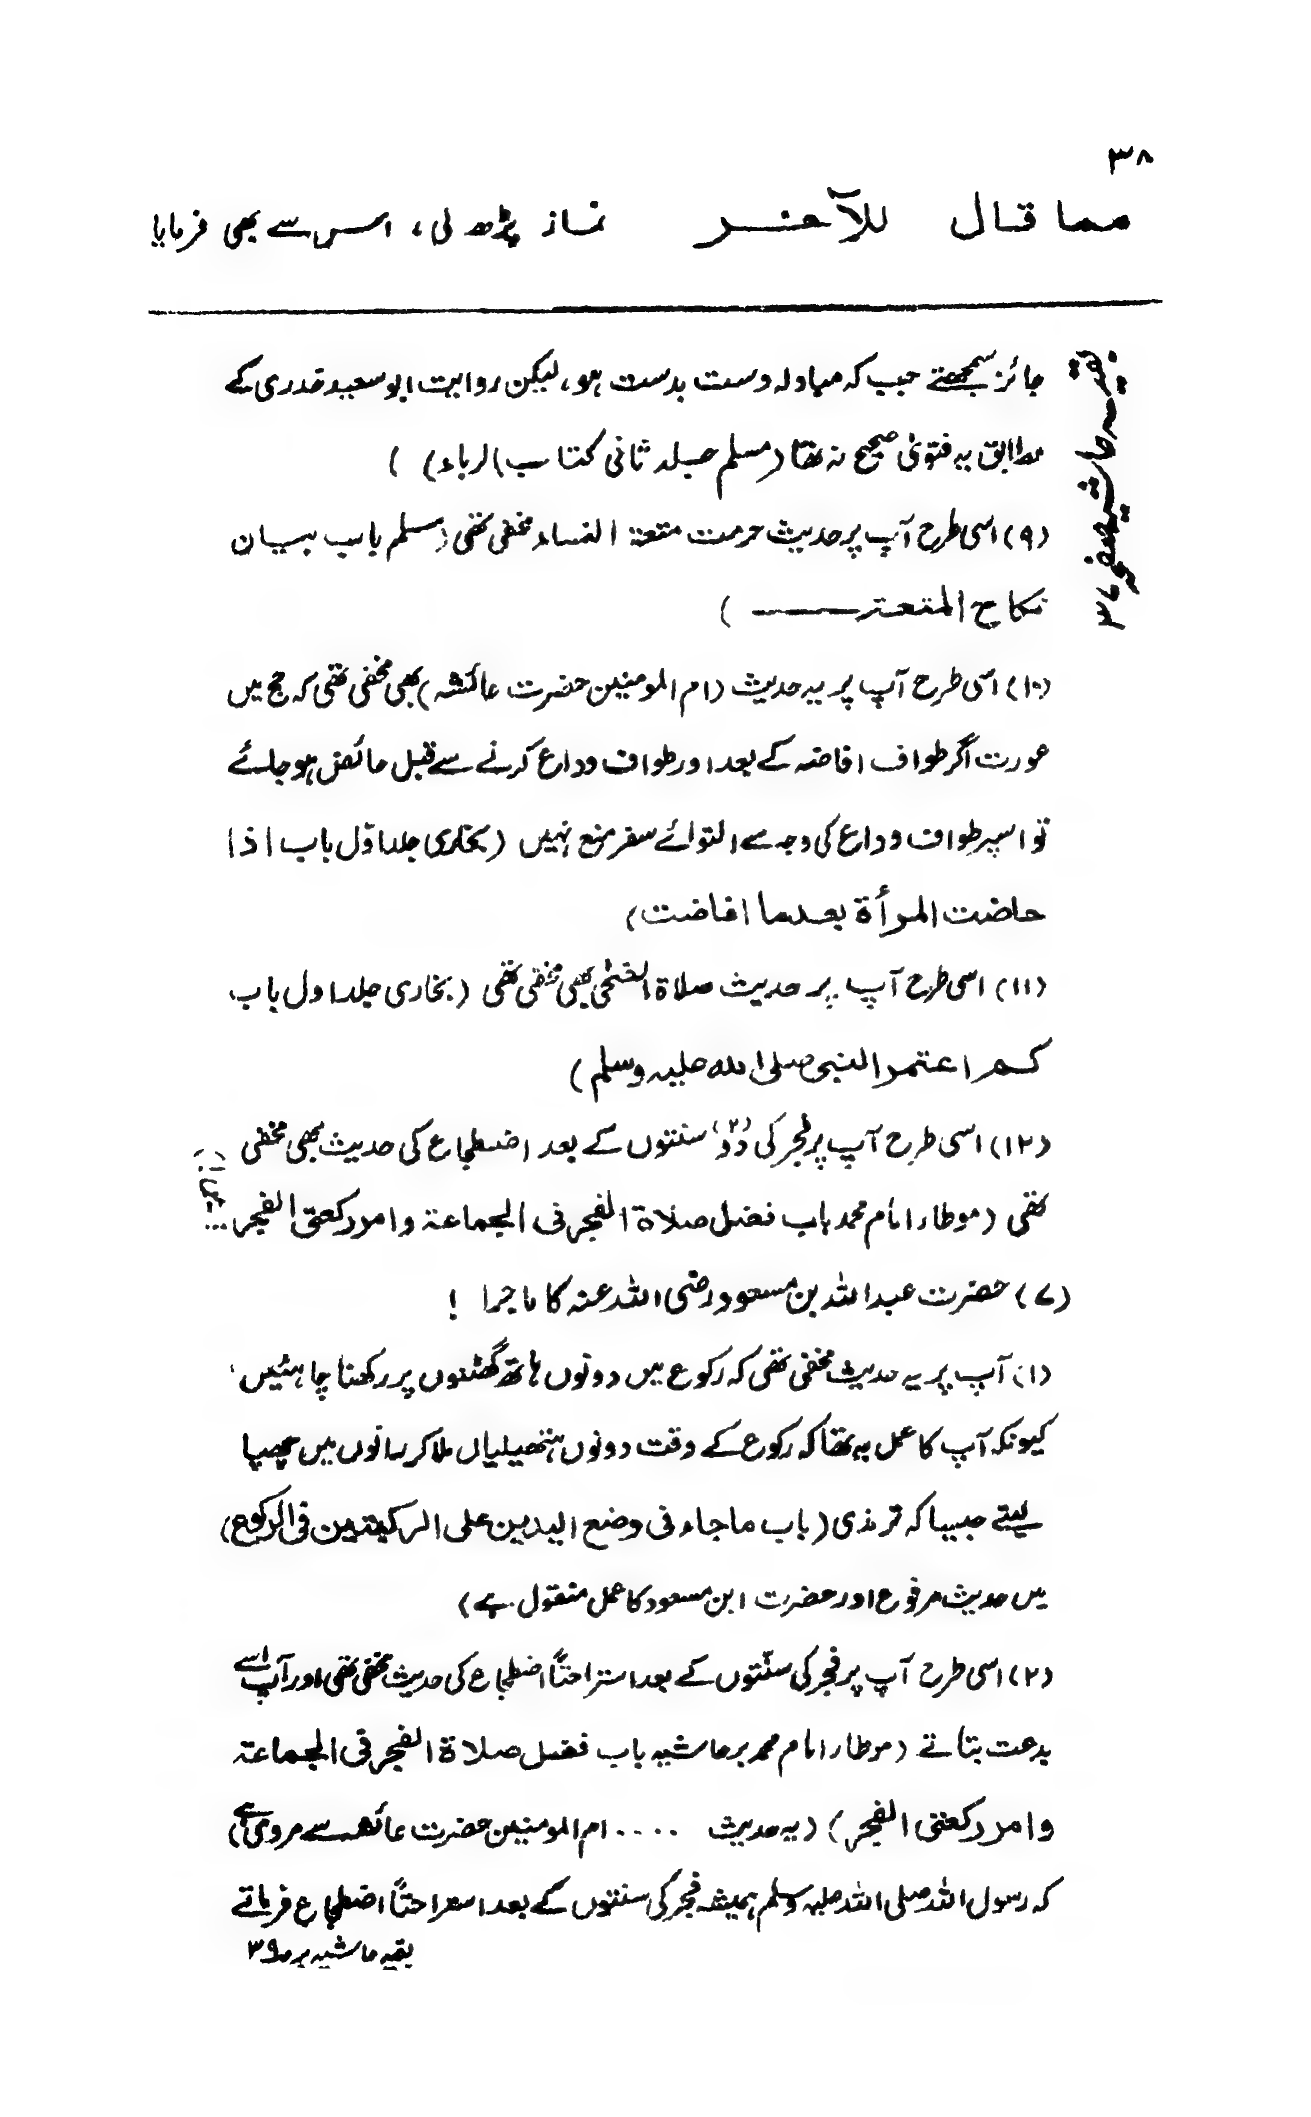 ۳۸
مما قال للآخر نماز پڑھ لی، اس سے بھی فرمایا
بقیہ حاشیہ صفحہ ۳۷
جائز سمجھتے جب کہ مبادلہ دست بدست ہو، لیکن روایت ابو سعید خدری کے
مطابق یہ فتویٰ صحیح نہ تھا (مسلم جلد ثانی کتاب الرباء) )
(۹) اسی طرح آپ پر حدیث حرمت متعۃ النساء مخفی تھی (مسلم باب بیان
نکاح المتعۃ ـــــ )
(۱۰) اسی طرح آپ پر یہ حدیث (ام المومنین حضرت عائشہ) بھی مخفی تھی کہ حج میں
عورت اگر طواف افاضہ کے بعد اور طواف وداع کرنے سے قبل حائض ہو جائے
تو اسپر طواف وداع کی وجہ سے التوائے سفر منع نہیں (بخاری جلد اوّل باب اذا
حاضت المرأۃ بعدما افاضت)
(۱۱) اسی طرح آپ پر حدیث صلاۃ الضحٰی بھی مخفی تھی (بخاری جلد اول باب
کم اعتمر النبی صلی اللہ علیہ وسلم)
(۱۲) اسی طرح آپ پر فجر کی دو (۲) سنتوں کے بعد اضطجاع کی حدیث بھی مخفی
تھی (موطاء امام محمد باب فضل صلاۃ الفجر فی الجماعۃ و امر رکعتی الفجر...
(۷) حضرت عبداللہ بن مسعود رضی اللہ عنہ کا ماجرا !
(۱) آپ پر یہ حدیث مخفی تھی کہ رکوع میں دونوں ہاتھ گھٹنوں پر رکھنا چاہئیں،
کیونکہ آپ کا عمل یہ تھا کہ رکوع کے وقت دونوں ہتھیلیاں ملا کر رانوں میں چھپا
لیتے جیسا کہ ترمذی (باب ماجاء فی وضع الیدین علی الرکبتین فی الرکوع)
میں حدیث مرفوع اور حضرت ابن مسعود کا عمل منقول ہے)
(۲) اسی طرح آپ پر فجر کی سنّتوں کے بعد استراحتاً اضطجاع کی حدیث مخفی تھی اور آپ اسے
بدعت بتاتے (موطاء امام محمد بر حاشیہ باب فضل صلاۃ الفجر فی الجماعۃ
و امر رکعتی الفجر) (یہ حدیث .... ام المومنین حضرت عائشہ سے مروی ہے)
کہ رسول اللہ صلی اللہ علیہ وسلم ہمیشہ فجر کی سنتوں کے بعد استراحتاً اضطجاع فرماتے
بقیہ حاشیہ بر ص۳۹